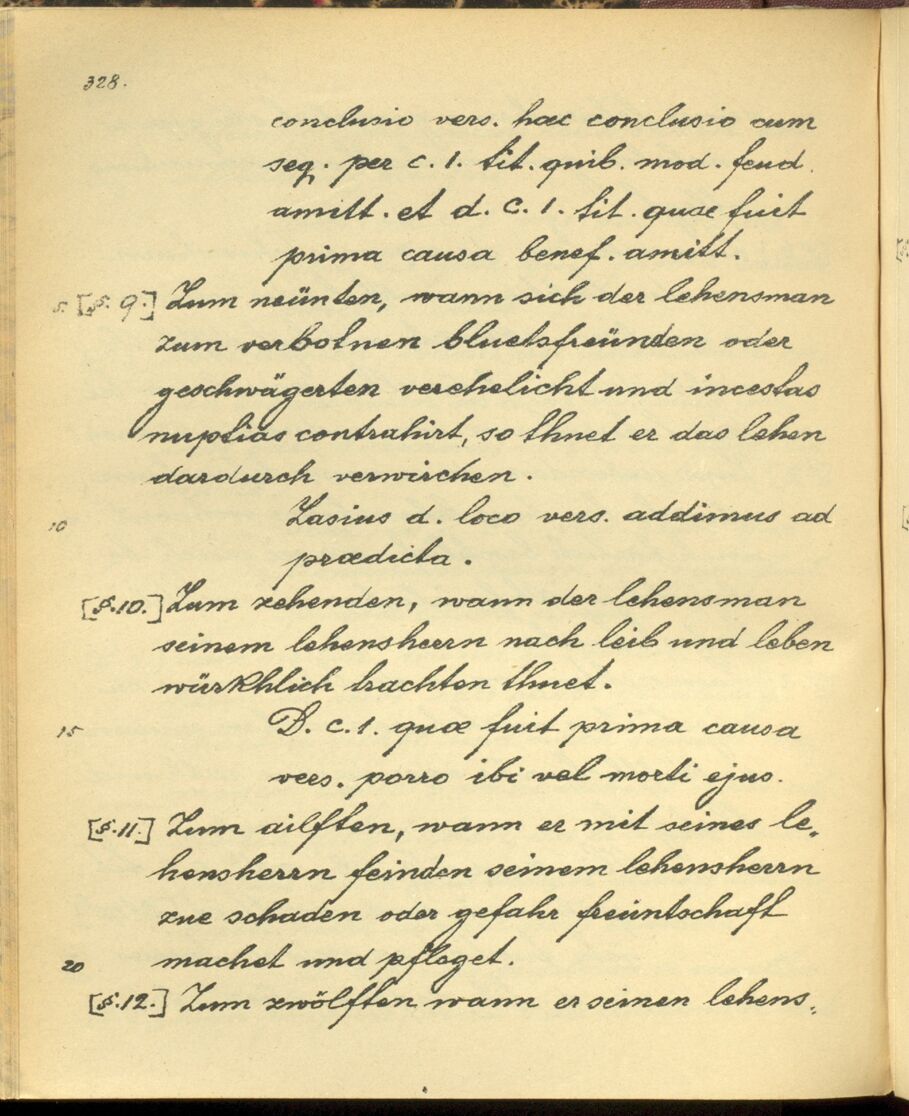 328.
conclusio vers. hæc conclusio cum
seq. per c. 1. tit. quib. mod. feud.
amitt. et d. c. 1. tit. quæ fuit
prima causa benef. amitt.
5. [§. 9.] Zum neünten, wann sich der lehensman
zum verbotnen bluetsfreünden oder
geschwägerten verehelicht und incestas
nuptias contrahirt, so thuet er das lehen
dardurch verwirchen.
10 Zasius d. loco vers. addimus ad
prædicta.
[§.10.] Zum zehenden, wann der lehensman
seinem lehensherrn nach leib und leben
würkhlich trachten thuet.
15 D. c. 1. quæ fuit prima causa
vers. porro ibi vel morti ejus.
[§.11.] Zum ailften, wann er mit seines le„
hensherrn feinden seinem lehensherrn
zue schaden oder gefahr freüntschaft
20 machet und pfleget.
[§.12.] Zum zwölften wann er seinen lehens„